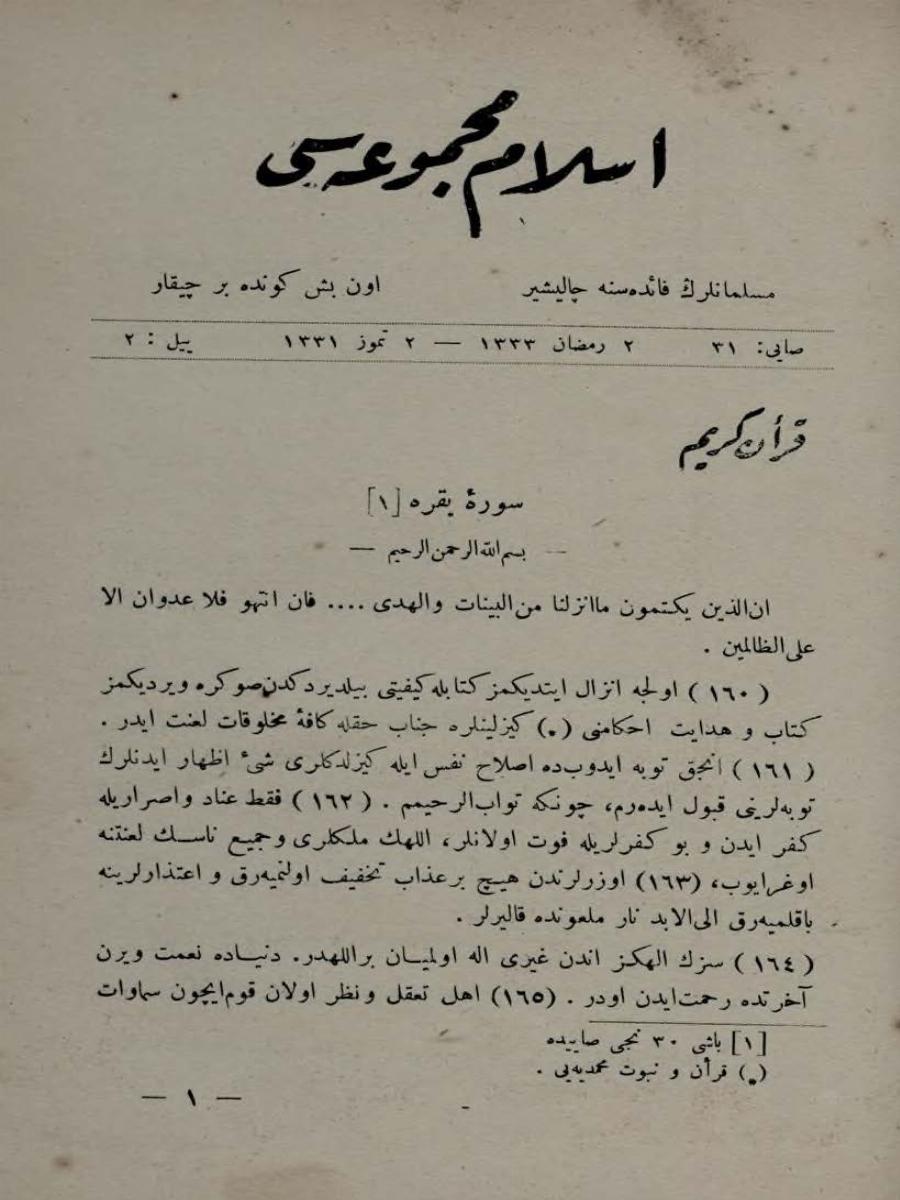 اسلام مجموعه‌سی
مسلمانلرڭ فائده‌سنه چالیشیر اون بش كونده بر چیقار
صایی: ٣١ ٢ رمضان ١٣٣٣ — ٢ تموز ١٣٣١ ییل : ٢
قرأن كریم
سورهٔ بقره [١]
— بسم الله الرحمن الرحیم —
ان‌الذین یكتمون ماانزلنا من‌البینات والهدى .... فان انتهو فلا عدوان الا
على‌الظالمین .
(١٦٠) اولجه انزال ایتدیكمز كتابله كیفیتی بیلدیردكدن‌صوكره ویردیكمز
كتاب و هدایت احكامنی (٭) كیزلینلره جناب حقله كافهٔ مخلوقات لعنت ایدر .
(١٦١) انجق توبه ایدوب‌ده اصلاح نفس ایله كیزلدكلری شیٔ اظهار ایدنلرك
توبه‌لرینی قبول ایده‌رم، چونكه تواب‌الرحیمم . (١٦٢) فقط عناد واصراریله
كفر ایدن و بو كفرلریله فوت اولانلر، اللهك ملكلری وجمیع ناسك لعنتنه
اوغرایوب، (١٦٣) اوزرلرندن هیچ برعذاب تخفیف اولنمیه‌رق و اعتذارلرینه
باقلمیه‌رق الى‌الابد نار ملعونده قالیرلر .
(١٦٤) سزك الهكز اندن غیری اله اولمیان براللهدر. دنیاده نعمت ویرن
آخرتده رحمت‌ایدن اودر . (١٦٥) اهل تعقل ونظر اولان قوم‌ایچون سماوات
[١] باشی ٣٠ نجی صاییده
(٭) قرأن و نبوت محمدیه‌یی .
— ١ —